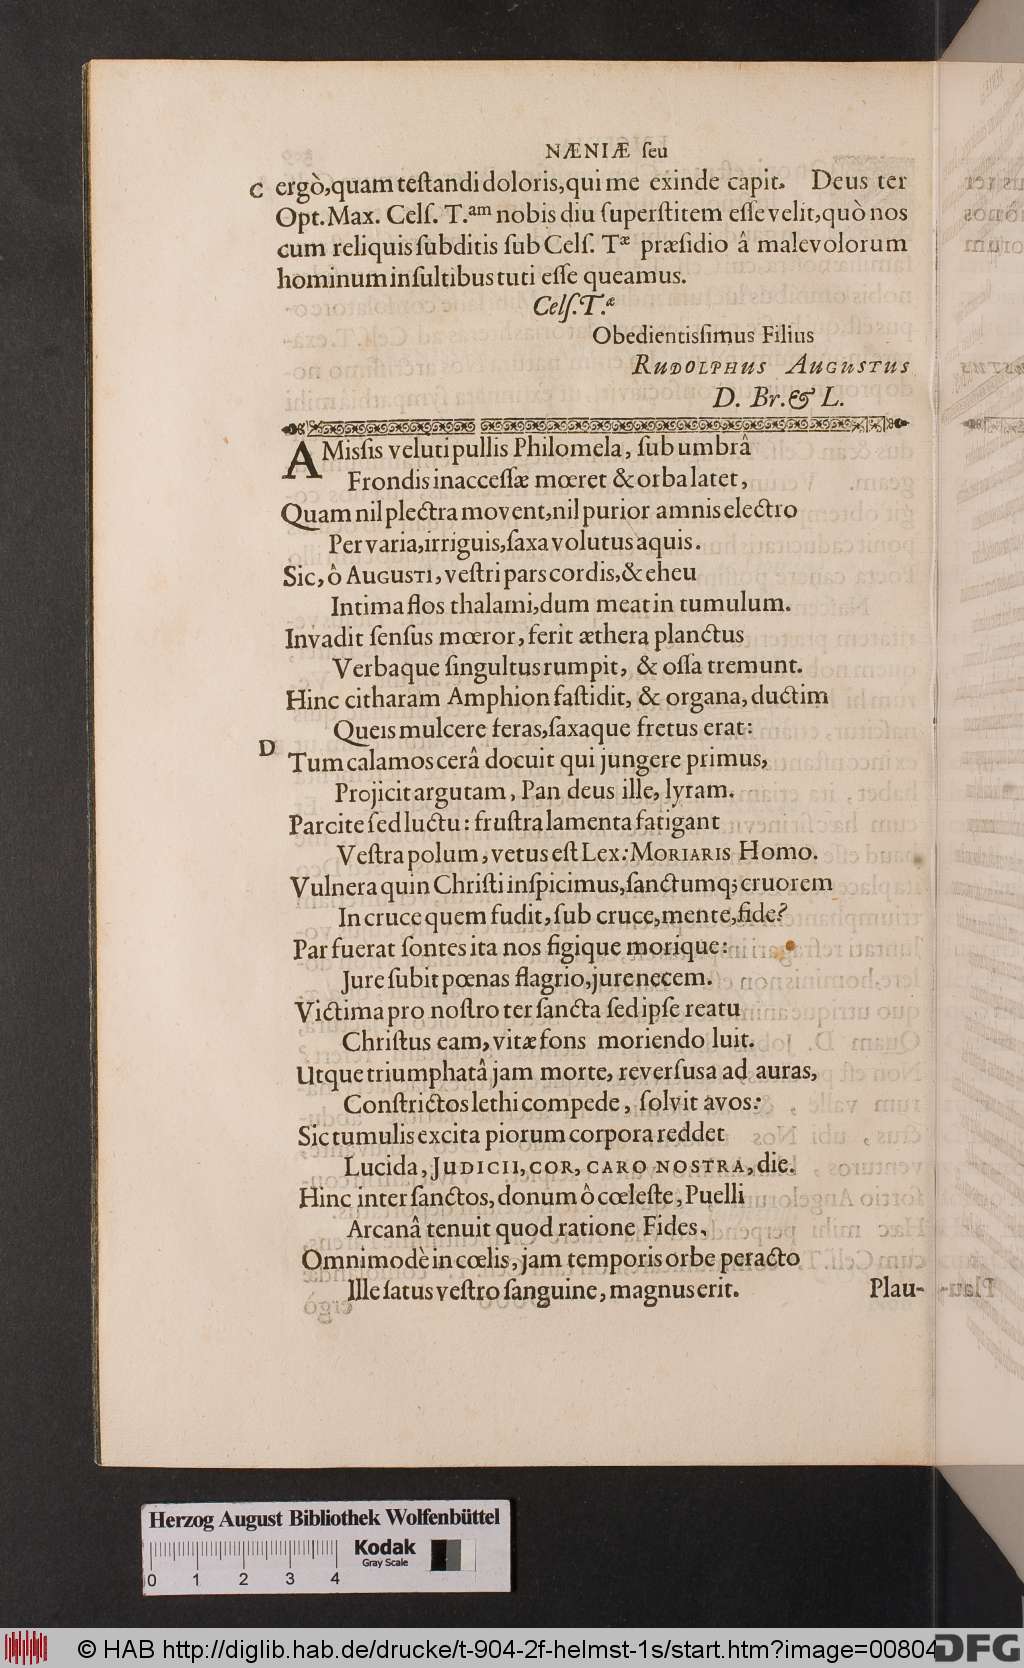 NÆNIÆ ſeu
C ergò, quam teſtandi doloris, qui me exinde capit. Deus ter
Opt. Max. Celſ. T.am nobis diu ſuperſtitem eſſe velit, quò nos
cum reliquis ſubditis ſub Celſ. Tæ præſidio â malevolorum
hominum inſultibus tuti eſſe queamus.
Celſ. T.æ
Obedientisſimus Filius
RUDOLPHUS AUGUSTUS
D. Br. & L.
AMisſis veluti pullis Philomela, ſub umbrâ
Frondis inacceſſæ mœret & orba latet,
Quam nil plectra movent, nil purior amnis electro
Per varia, irriguis, ſaxa volutus aquis.
Sic, ô AUGUSTI, veſtri pars cordis, & eheu
Intima flos thalami, dum meat in tumulum.
Invadit ſenſus mœror, ferit æthera planctus
Verbaque ſingultus rumpit, & oſſa tremunt.
Hinc citharam Amphion faſtidit, & organa, ductim
Queis mulcere feras, ſaxaque fretus erat:
D
Tum calamos cerâ docuit qui jungere primus,
Projicit argutam, Pan deus ille, lyram.
Parcite ſed luctu: fruſtra lamenta fatigant
Veſtra polum, vetus eſt Lex: MORIARIS Homo.
Vulnera quin Chriſti inſpicimus, ſanctumq; cruorem
In cruce quem fudit, ſub cruce, mente, fide?
Par fuerat ſontes ita nos figique morique:
Jure ſubit pœnas flagrio, jure necem.
Victima pro noſtro ter ſancta ſed ipſe reatu
Chriſtus eam, vitæ fons moriendo luit.
Utque triumphatâ jam morte, reverſus ad auras,
Conſtrictos lethi compede, ſolvit avos:
Sic tumulis excita piorum corpora reddet
Lucida, JUDICII, COR, CARO NOSTRA, die.
Hinc inter ſanctos, donum ô cœleſte, Puelli
Arcanâ tenuit quod ratione Fides,
Omnimodè in cœlis, jam temporis orbe peracto
Ille ſatus veſtro ſanguine, magnus erit.
Plau-
Herzog August Bibliothek Wolfenbüttel
Kodak
Gray Scale
0 1 2 3 4
© HAB http://diglib.hab.de/drucke/t-904-2f-helmst-1s/start.htm?image=00804
DFG